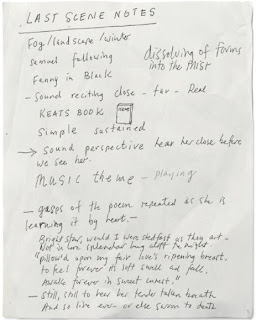 LAST SCENE NOTES
Fog/landscape/winter
Samuel following
dissolving of forms
into the MIST
Fanny in Black
- Sound reciting close - far - Real
KEATS BOOK
Simple sustained
→ Sound perspective hear her close before
we see her.
MUSIC theme - playing
- gasps of the poem repeated as she is
learning it by heart. -
Bright Star, would I were stedfast as thou art -
Not in lone splendour hung aloft the night.
"pillow'd upon my fair love's ripening breast,
to feel forever its soft swell and fall,
Awake forever in sweet unrest."
- Still, still to hear her tender taken breath
And so live ever or else swoon to death